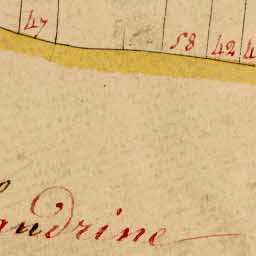 47 58 42 4
andrine